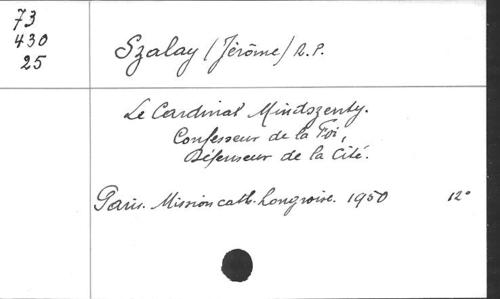 73
430
25
Szalay (Jérôme) R.P.
Le Cardinal Mindszenty.
Confesseur de la Foi,
Défenseur de la Cité.
Paris. Mission cath. hongroise. 1950 12°